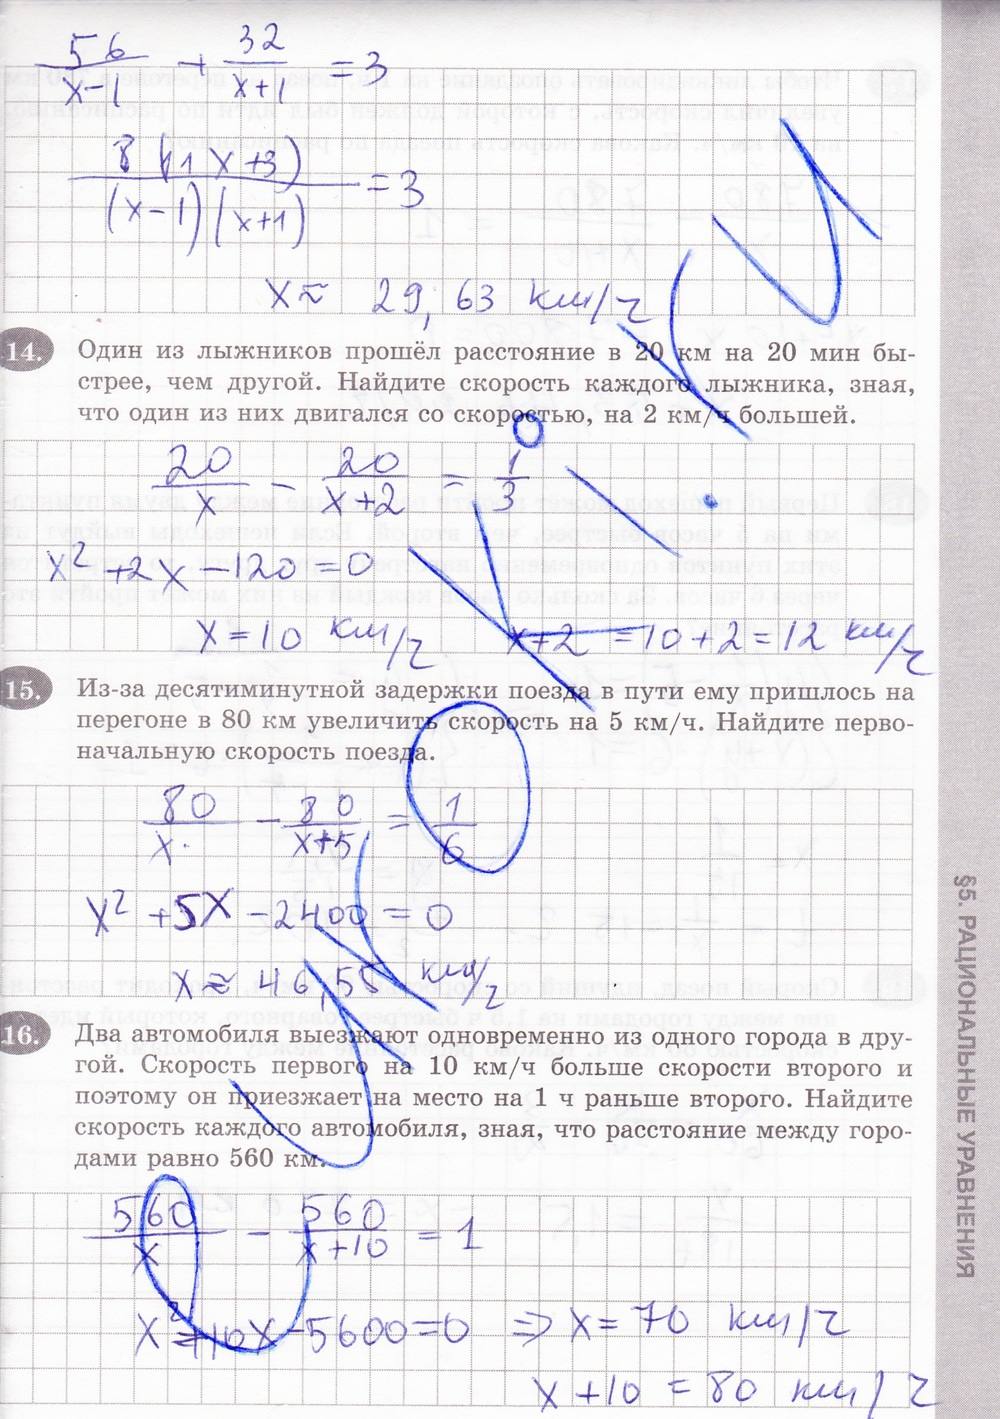 56/(x-1) + 32/(x+1) = 3
8(11x+3)/((x-1)(x+1)) = 3
x ≈ 29,63 км/ч
14. Один из лыжников прошёл расстояние в 20 км на 20 мин бы-
стрее, чем другой. Найдите скорость каждого лыжника, зная,
что один из них двигался со скоростью, на 2 км/ч большей.
20/x - 20/(x+2) = 1/3
x² + 2x - 120 = 0
x = 10 км/ч x+2 = 10+2 = 12 км/ч
15. Из-за десятиминутной задержки поезда в пути ему пришлось на
перегоне в 80 км увеличить скорость на 5 км/ч. Найдите перво-
начальную скорость поезда.
80/x - 80/(x+5) = 1/6
x² + 5x - 2400 = 0
x ≈ 46,55 км/ч
16. Два автомобиля выезжают одновременно из одного города в дру-
гой. Скорость первого на 10 км/ч больше скорости второго и
поэтому он приезжает на место на 1 ч раньше второго. Найдите
скорость каждого автомобиля, зная, что расстояние между горо-
дами равно 560 км.
560/x - 560/(x+10) = 1
x² + 10x - 5600 = 0 ⇒ x = 70 км/ч
x + 10 = 80 км/ч
§5. РАЦИОНАЛЬНЫЕ УРАВНЕНИЯ